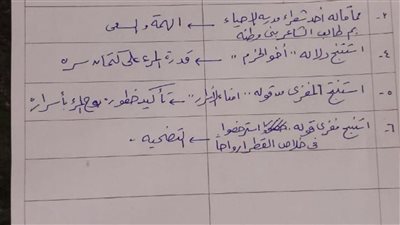 ٣- مما قاله أحد شعراء مدرسة الإحياء ← الهمة والسعى
بم طالب الشاعر بنى وطنه
٤- استنتج دلالة "أخو الحزم" ← قدرة المرء على كتمان سره
٥- استنتج المغزى من قوله "افشاء الأسرار" ← تأكيد خطورة بوح المرء بأسراره
٦- استنتج مغزى قوله استرخصوا ← التضحية -
فى خلاص القطر أرواحا